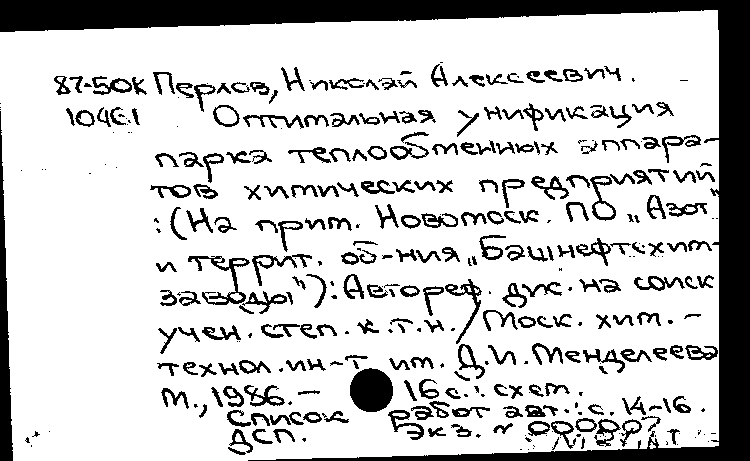 87-50к Перлов, Николай Алексеевич.
10461 Оптимальная унификация
парка теплообменных аппара-
тов химических предприятий
: (На прим. Новомоск. ПО „Азот"
и террит. об-ния „Башнефтехим-
заводы"): Автореф. дис. на соиск
учен. степ. к.т.н. / Моск. хим.-
технол. ин-т им. Д.И. Менделеева
М., 1986. - 16 с.: схем.
Список работ авт.: с. 14-16.
ДСП. Экз. N 000007